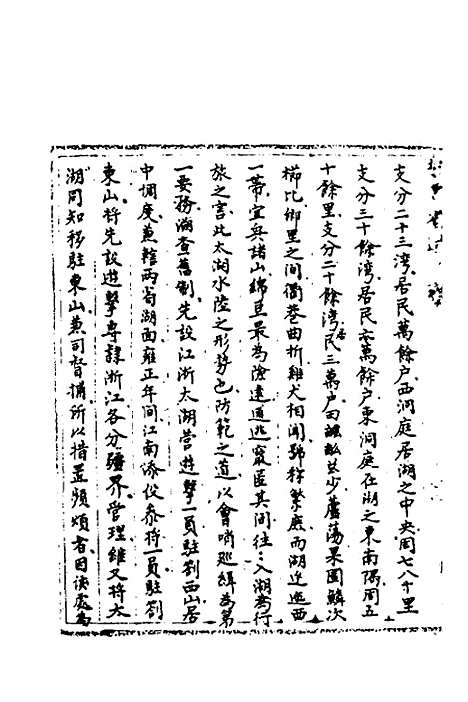 支分二十三湾居民萬餘户西洞庭居湖之中央周七八十里
支分三十餘湾居民六萬餘户東洞庭在湖之東南隅周五
十餘里支分二十餘湾居民三萬户田畝甚少蘆蕩果園鱗次
櫛比鄉里之间衢巷曲折雞犬相聞號称繁庶而湖迤逦西
一帶宜兵諸山綿亘最為險遠逋逃竄匿其间往〻入湖為行
旅之害此太湖水陸之形势也防範之道以會哨巡緝為第
一要務溯查舊制先設江浙太湖营遊擊一員駐劄西山居
中调度兼轄两省湖面雍正年间江南添设参将一員駐劄
東山将先設遊擊專隷浙江各分疆界管理維又将太
湖同知移駐東山兼司督捕所以措置頻煩者因该處為